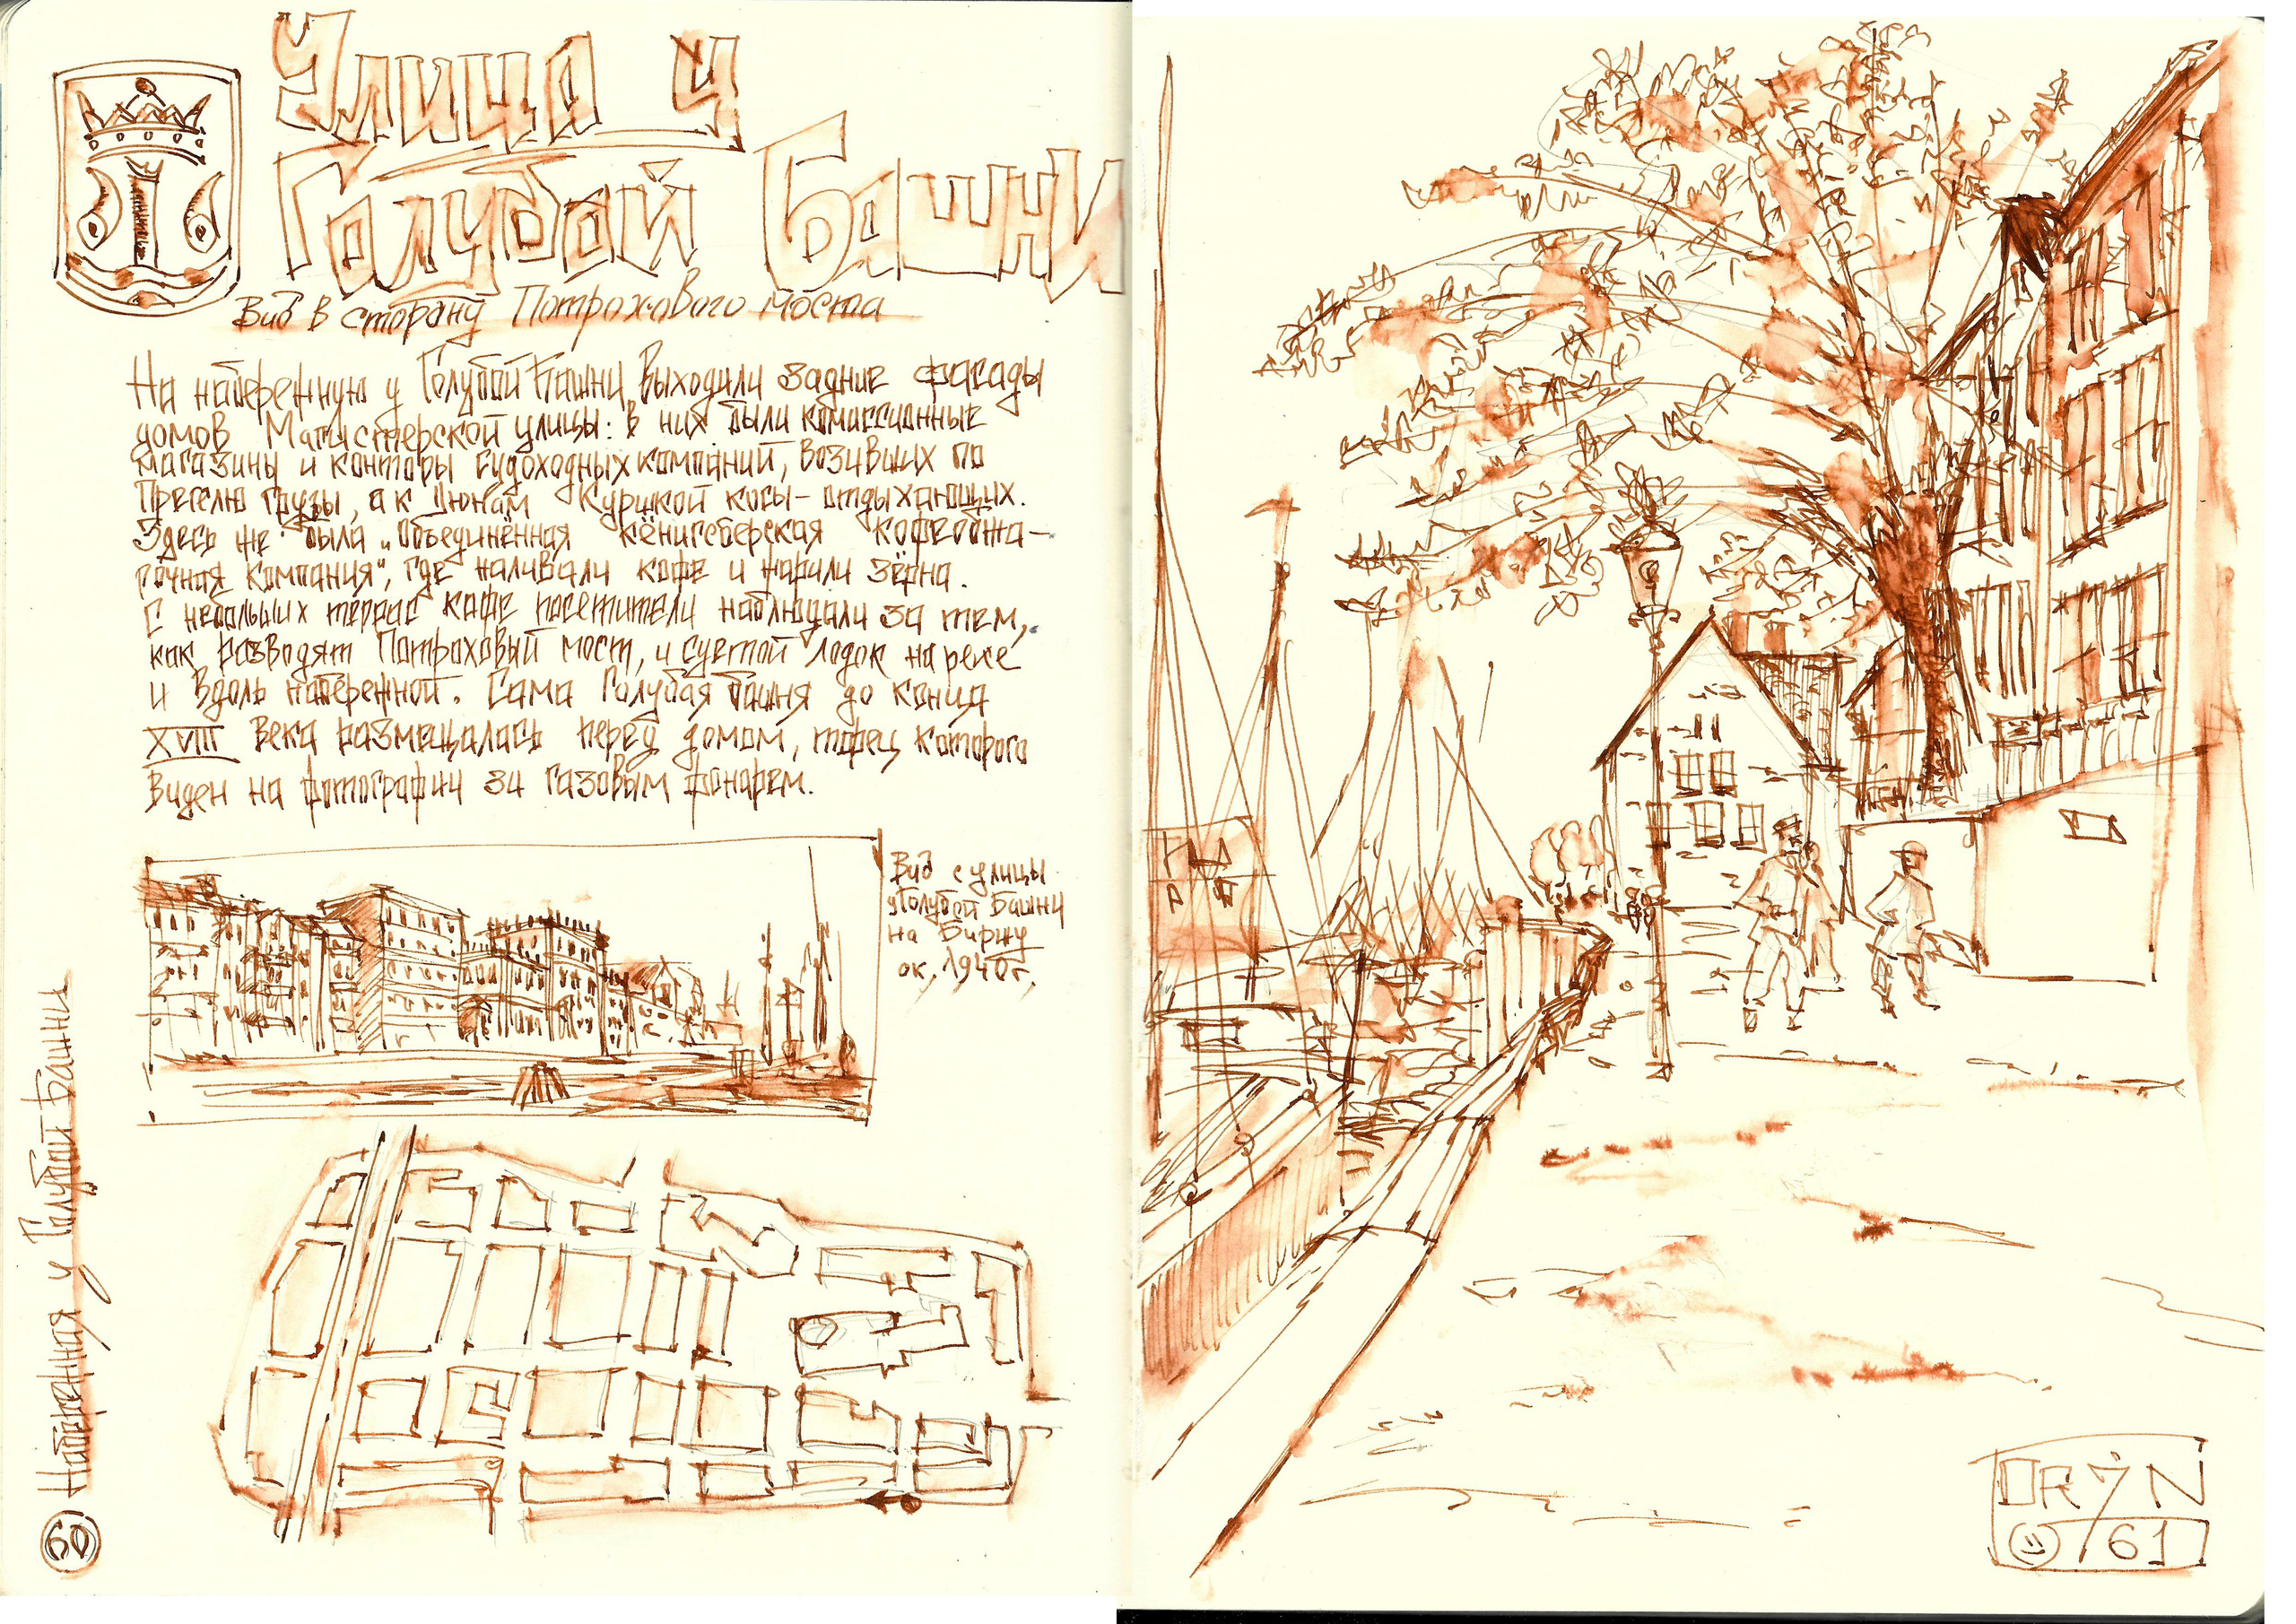 Улица у
Голубой Башни
Вид в сторону Потрохового моста
На набережную у Голубой Башни выходили задние фасады
домов Магистерской улицы: в них были комиссионные
магазины и конторы судоходных компаний, возивших по
Преголю грузы, а к дюнам Куршской косы – отдыхающих.
Здесь же была „Объединённая кёнигсбергская кофеобжа-
рочная компания“, где наливали кофе и жарили зёрна.
С небольших террас кафе посетители наблюдали за тем,
как разводят Потроховый мост, и суетой лодок на реке
и вдоль набережной. Сама Голубая башня до конца
XVIII века размещалась перед домом, торец которого
виден на фотографии за газовым фонарем.
Вид с улицы
у Голубой Башни
на Биржу
ок. 1940г.
Набережная у Голубой Башни
60
61